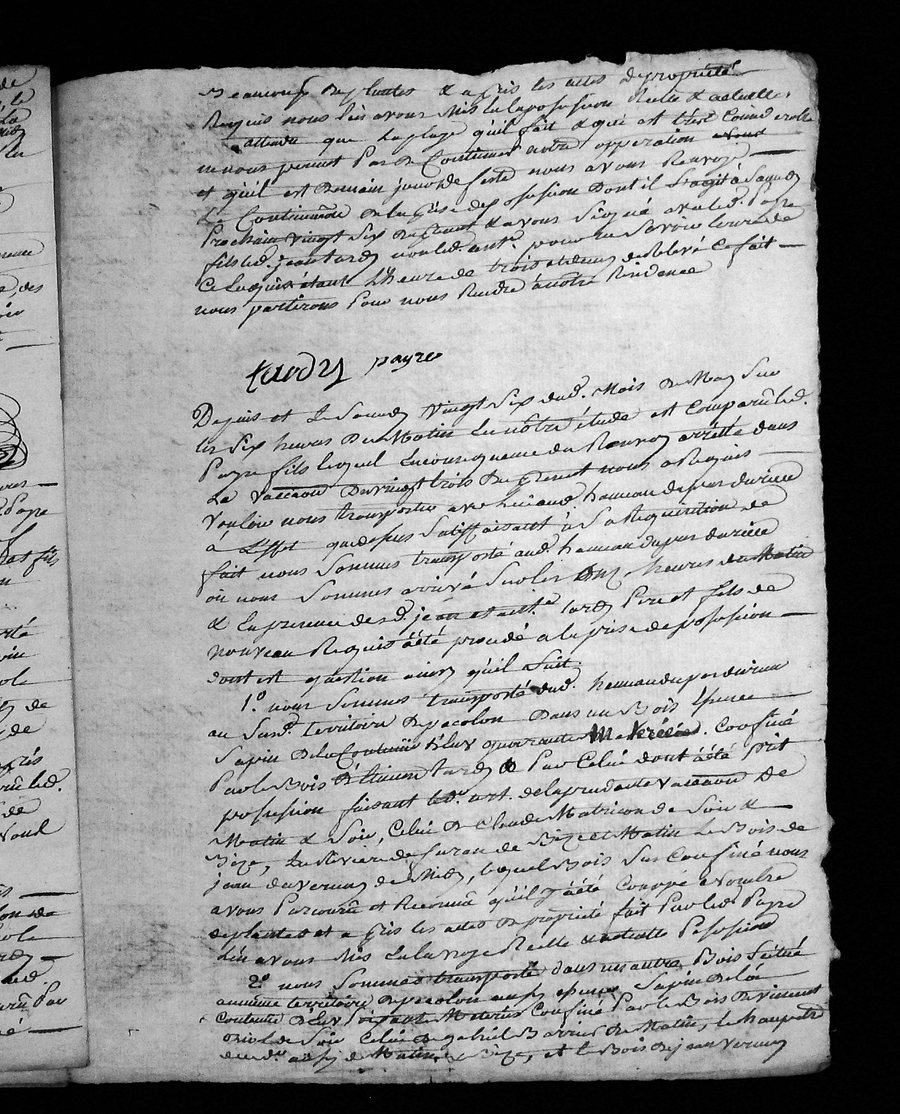 Beaucoup de plantes & a pris les actes de propriété
Requis nous l'en avons Mis en la posession Réelle & actuelle
attendu que la plage qu'il fait & qui est
ne nous permet Pas de Continuer notre opperation
et qu'il est Demain jour de feste nous avons Renvoyé
La Continuation De la prise de possession Dont il S'agit a Samedy
Prochain vingt Six du présent & avons Signé avec led. Payre
fils led. jean tardy non led. ant. pour ne Scavoir Ecrire de
Ce Requis étant L'heure de trois de Relevé Ce fait
nous partirons Pour nous Rendre a notre Residence
tardy payre
Depuis et Le Samedy vingt Six dud. Mois de May Sur
les Six heures Du Matin En notre étude est Comparu led.
Payre fils lequel En consequence du Renvoy arretté dans
La vacation Du vingt trois Du present nous a Requis
Vouloir nous transporter avec lui aud. hameau du perduriere
a L'effet que dessus Satisfaisant à Sa Requisition de
fait nous Sommes transporté aud. hameau du perduriere
ou nous Sommes arrivé Sur les onze heures du Matin
& En presence desd. jean et ant. tardy Pere et fils de
nouveau Requis a été procedé a la prise de possession
dont est question ainsy qu'il Suit
1° nous Sommes transporté dud. hameau du perduriere
au Susd. territoire de pacolon Dans un Bois Essence
Sapin De la Contenue d'Eux quarante Confiné
Par le Bois D'Etienne tardy & Par Celui dont a été Prit
possession faisant led. art. de la precedente vacation de
Matin & Soir, Celui de Claude Matricon de Soir &
Bize, La Riviere de furan de Bize et Matin Le Bois de
jean duvernay de Midy, lequel Bois Sus Confiné nous
avons Parcouru et Reconnu qu'il y a été Couppé a nombre
de plantes et a pris les actes de propriété fait Par led. Payre
L'en avons Mis En la vraye Reelle & actuelle Possession
2° nous Sommes transporté dans un autre Bois Scitué
au même territoire de pacolon aussy essence Sapin De la
Contenue d'Eux Soixante Meterés Confiné Par le Bois De vincent
oriol de Soir Celui De gabriel Barrier De Matin,
de Matin, & Bize, et le Bois De jean Vernay